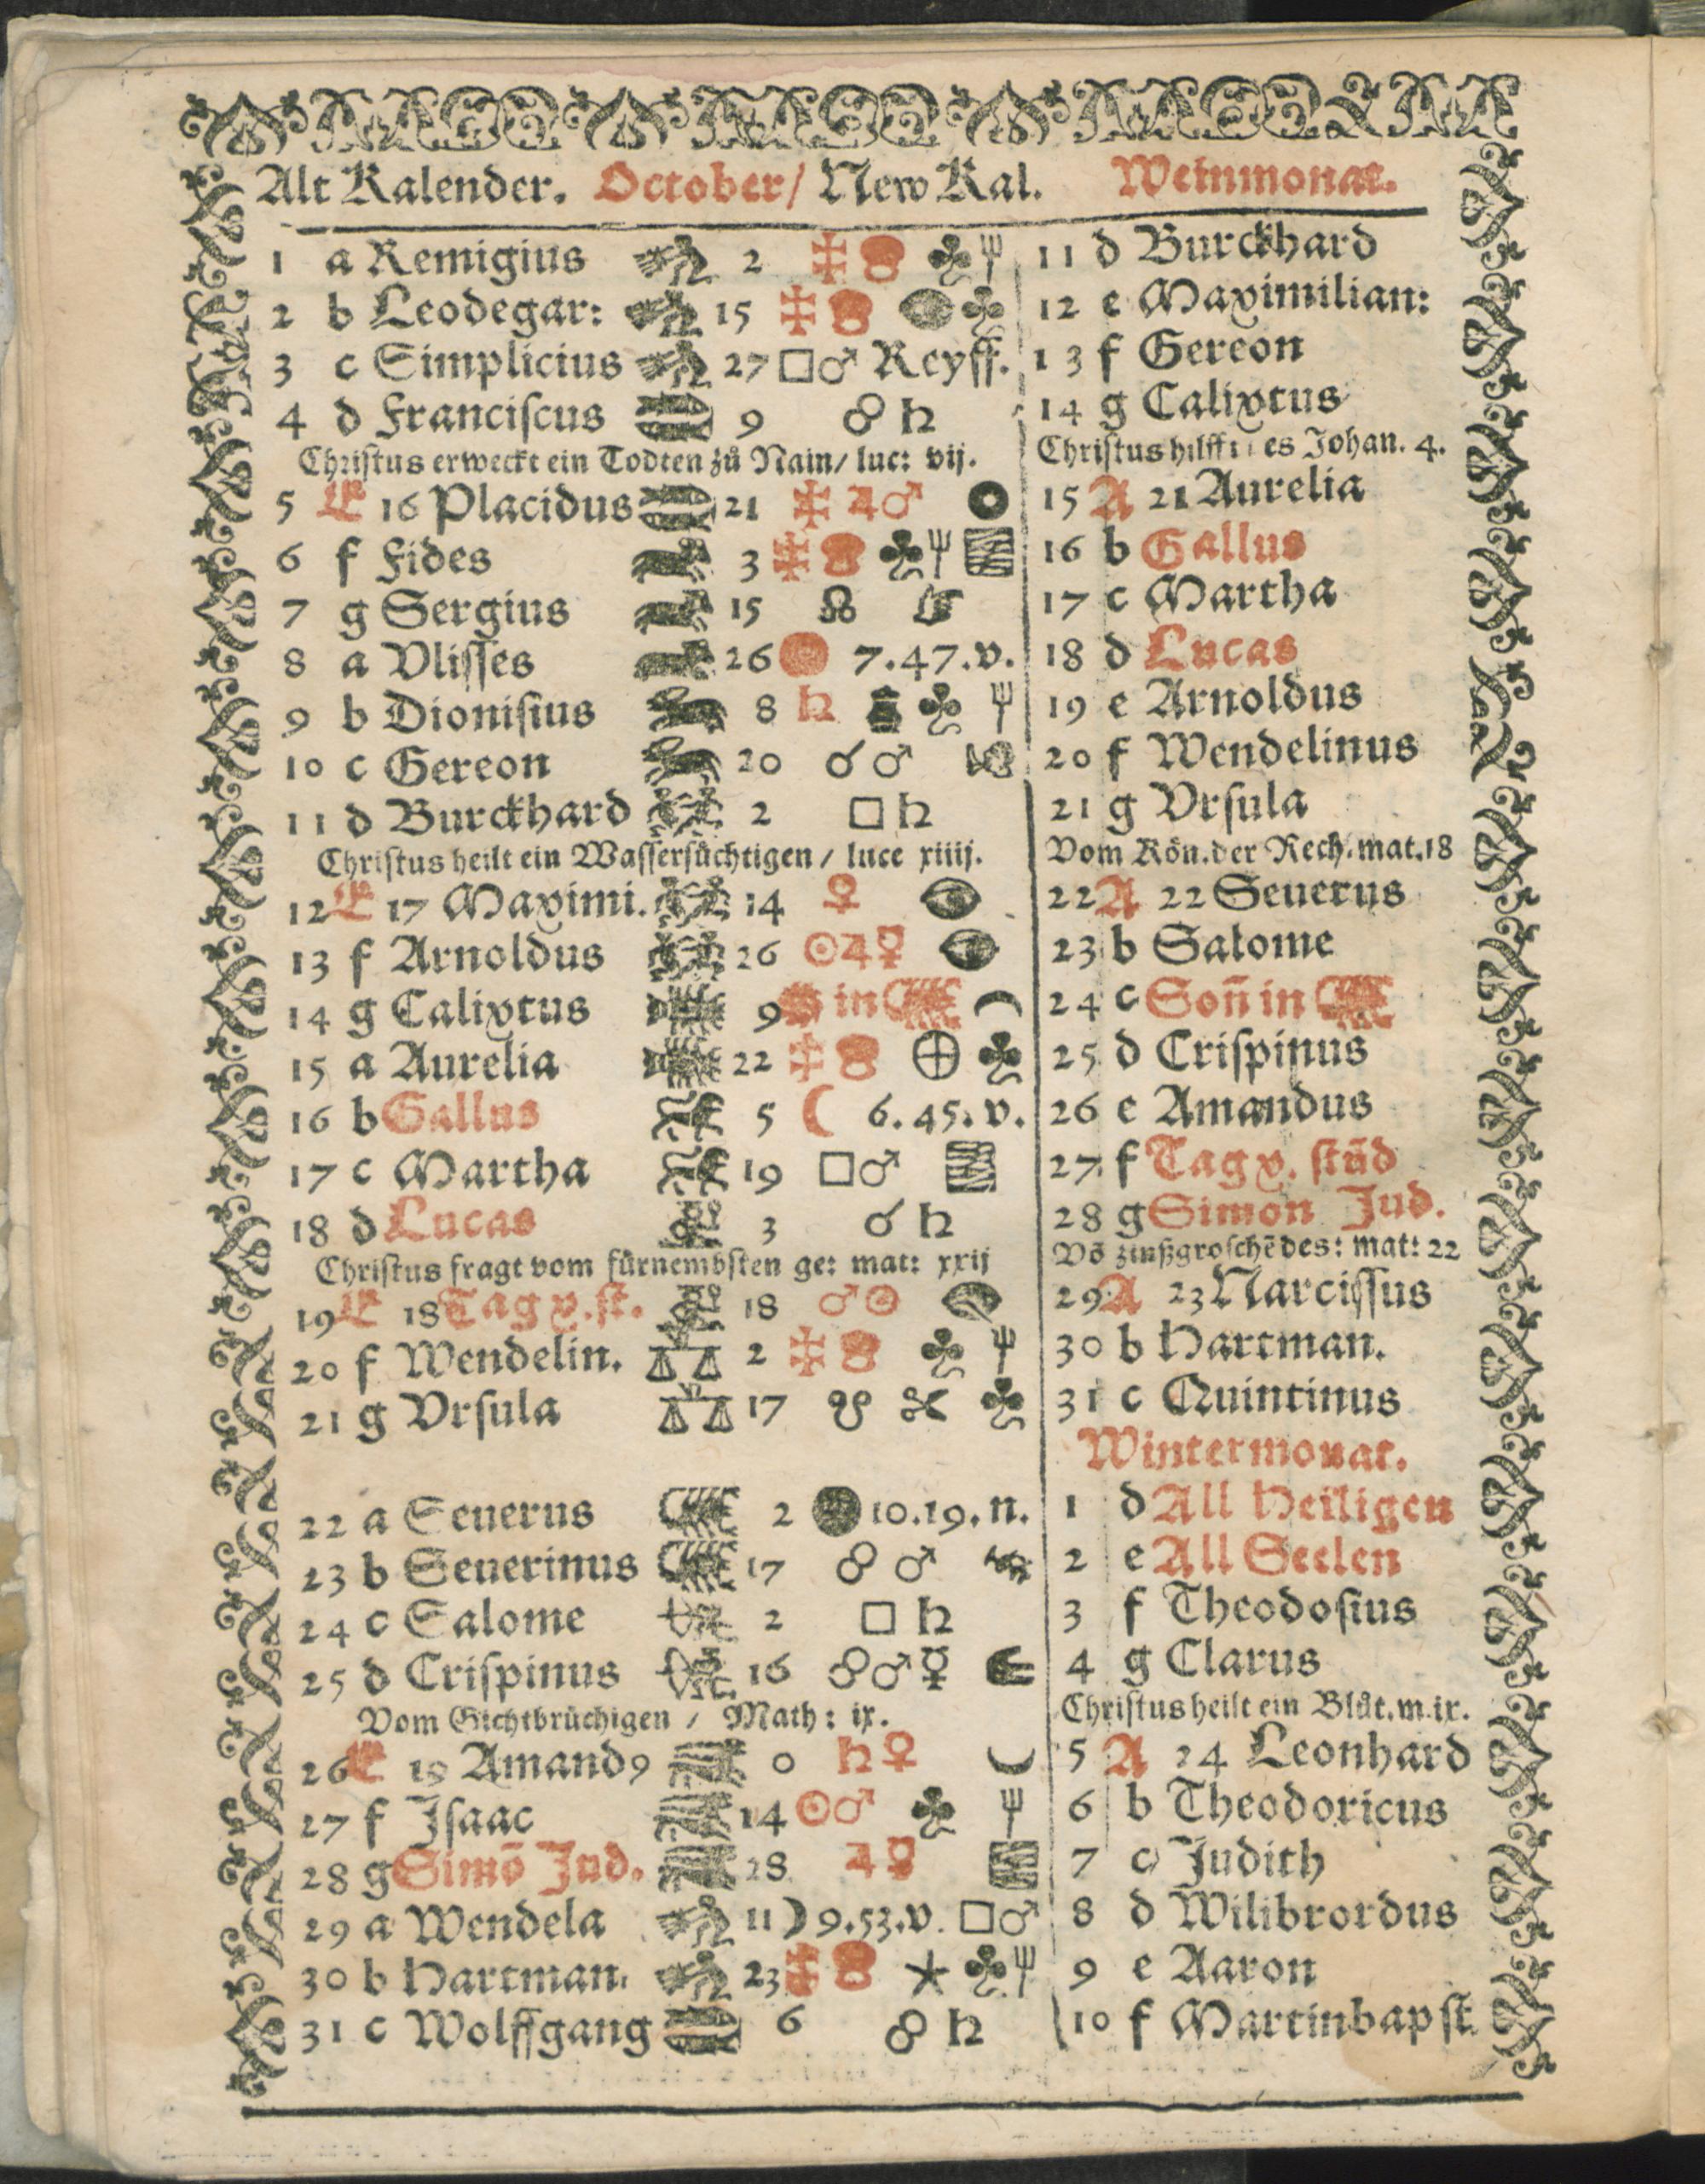 Alt Kalender. October/ New Kal. Weinmonat.
1 a Remigius 2 11 d Burckhard
2 b Leodegar: 15 12 e Maximilian:
3 c Simplicius 27 □♂ Reyff. 13 f Gereon
4 d Franciſcus 9 ☍♄ 14 g Calixtus
Chriſtus erweckt ein Todten zů Nain/ luc: vij. Chriſtus hilfft es Johan. 4.
5 E 16 Placidus 21 ♃♂ 15 A 21 Aurelia
6 f Fides 3 16 b Gallus
7 g Sergius 15 ☊ 17 c Martha
8 a Vliſſes 26 7.47.v. 18 d Lucas
9 b Dioniſius 8 ♄ 19 e Arnoldus
10 c Gereon 20 ☌♂ 20 f Wendelinus
11 d Burckhard 2 □♄ 21 g Vrſula
Chriſtus heilt ein Waſſerſüchtigen / luce xiiij. Vom Kön. der Rech. mat. 18
12 E 17 Maximi. 14 ♀ 22 A 22 Seuerus
13 f Arnoldus 26 ☉♃☿ 23 b Salome
14 g Calixtus 9 in 24 c Soñ in
15 a Aurelia 22 25 d Criſpinus
16 b Gallus 5 ☾ 6.45.v. 26 e Amandus
17 c Martha 19 □♂ 27 f Tag x. ſtūd
18 d Lucas 3 ☌♄ 28 g Simon Jud.
Chriſtus fragt vom fürnembſten ge: mat: xxij Võ zinßgroſchē des: mat: 22
19 E 18 Tag x.ſt. 18 ♂☉ 29 A 23 Narciſſus
20 f Wendelin. 2 30 b Hartman.
21 g Vrſula 17 ☋ 31 c Quintinus
Wintermonat.
22 a Seuerus 2 10.19.n. 1 d All Heiligen
23 b Seuerinus 17 ☍♂ 2 e All Seelen
24 c Salome 2 □♄ 3 f Theodoſius
25 d Criſpinus 16 ☍♂☿ 4 g Clarus
Vom Gichtbrüchigen / Math: ix. Chriſtus heilt ein Blůt. m. ix.
26 E 19 Amand9 0 ♄♀ 5 A 24 Leonhard
27 f Iſaac 14 ☉♂ 6 b Theodoricus
28 g Simõ Jud. 28 ♃☿ 7 c Judith
29 a Wendela 11 ☽ 9.53.v. □♂ 8 d Wilibrordus
30 b Hartman. 23 9 e Aaron
31 c Wolffgang 6 ☍♄ 10 f Martinbapſt.